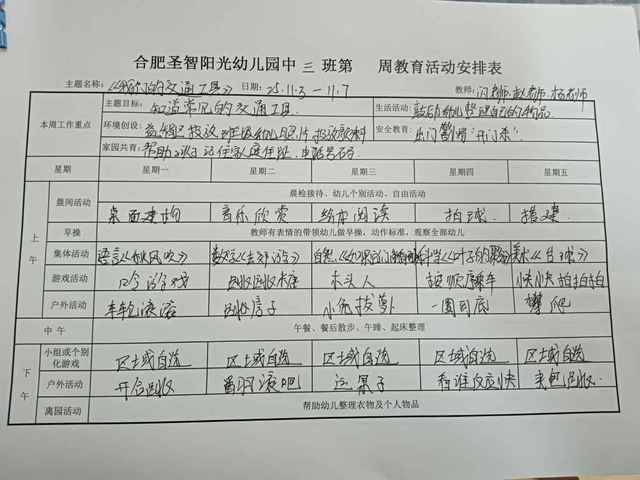 合肥圣智阳光幼儿园中 三 班第 周教育活动安排表
主题名称:《我们的交通工具》 日期: 25.11.3 — 11.7 教师: 闪老师 赵老师 杨老师
本周工作重点 主题目标: 知道常见的交通工具 生活活动: 鼓励幼儿整理自己的物品
环境创设: 安全教育: 出门警惕“开门杀”
家园共育: 帮助幼儿记住家庭住址、电话号码
星期 星期一 星期二 星期三 星期四 星期五
上午 晨间活动 晨检接待、幼儿个别活动、自由活动
桌面建构 音乐欣赏 绘本阅读 拍球 搭建
早操 教师有表情的带领幼儿做早操,动作标准,观察全部幼儿
集体活动 语言《秋风吹》 数学 自然 科学 美术
游戏活动 口令游戏 木头人 按顺序乘车 快快拍拍拍
户外活动 车轮滚滚 小兔拔萝卜 一圆到底 攀爬
中午 午餐、餐后散步、午睡、起床整理
下午 小组或个别化游戏 区域自选 区域自选 区域自选 区域自选 区域自选
户外活动 运果子 看谁反应快
离园活动 帮助幼儿整理衣物及个人物品